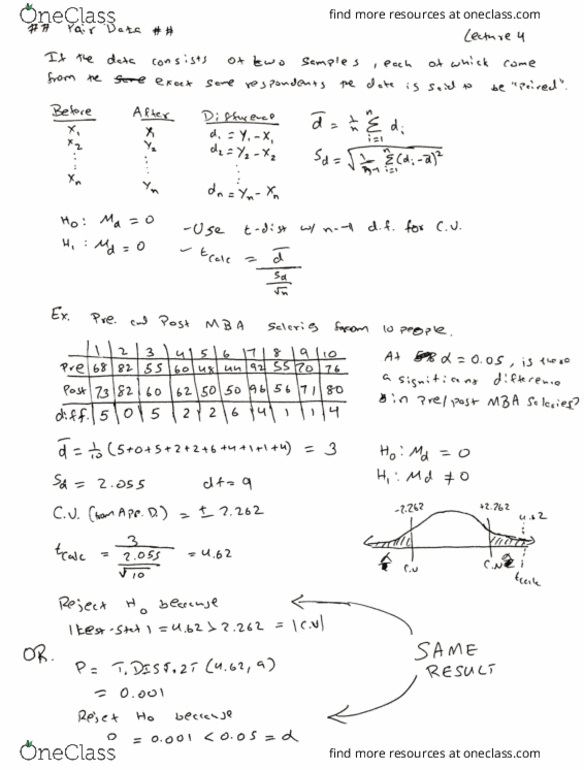 OneClass
find more resources at oneclass.com
## Pair Data ##
Lecture 4
If the data consists of two samples, each of which come
from the same exact same respondents the data is said to be "paired".
Before After Difference
X₁ X₁ d₁ = Y₁ - X₁
X₂ Y₂ d₂ = Y₂ - X₂
⋮ ⋮ ⋮
Xn Yn dn = Yn - Xn
d̄ = 1/n Σ(i=1 to n) di
Sd = √(1/(n-1) Σ(i=1 to n) (di - d̄)²)
H₀: Md = 0
H₁: Md = 0
- Use t-dist w/ n-1 d.f. for C.V.
- tcalc = d̄ / (Sd/√n)
Ex. Pre and Post MBA salaries from 10 people.
1 2 3 4 5 6 7 8 9 10
Pre 68 82 55 60 48 44 92 55 70 76
Post 73 82 60 62 50 50 96 56 71 80
diff. 5 0 5 2 2 6 4 1 1 4
At α = 0.05, is there
a significant difference
in Pre/post MBA salaries?
d̄ = 1/10 (5+0+5+2+2+6+4+1+1+4) = 3
Sd = 2.055 df = 9
C.V. (from App. D.) = ± 2.262
tcalc = 3 / (2.055/√10) = 4.62
H₀: Md = 0
H₁: Md ≠ 0
-2.262 +2.262 4.62
C.V C.V
tcalc
Reject H₀ because
|test-stat| = 4.62 > 2.262 = |C.V|
OR.
P = T.DIST.2T (4.62, 9)
= 0.001
Reject H₀ because
P = 0.001 < 0.05 = α
SAME
RESULT
OneClass
find more resources at oneclass.com